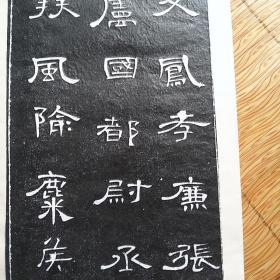 文鳳孝廉張
廬國都尉丞
扶風隃麋矦